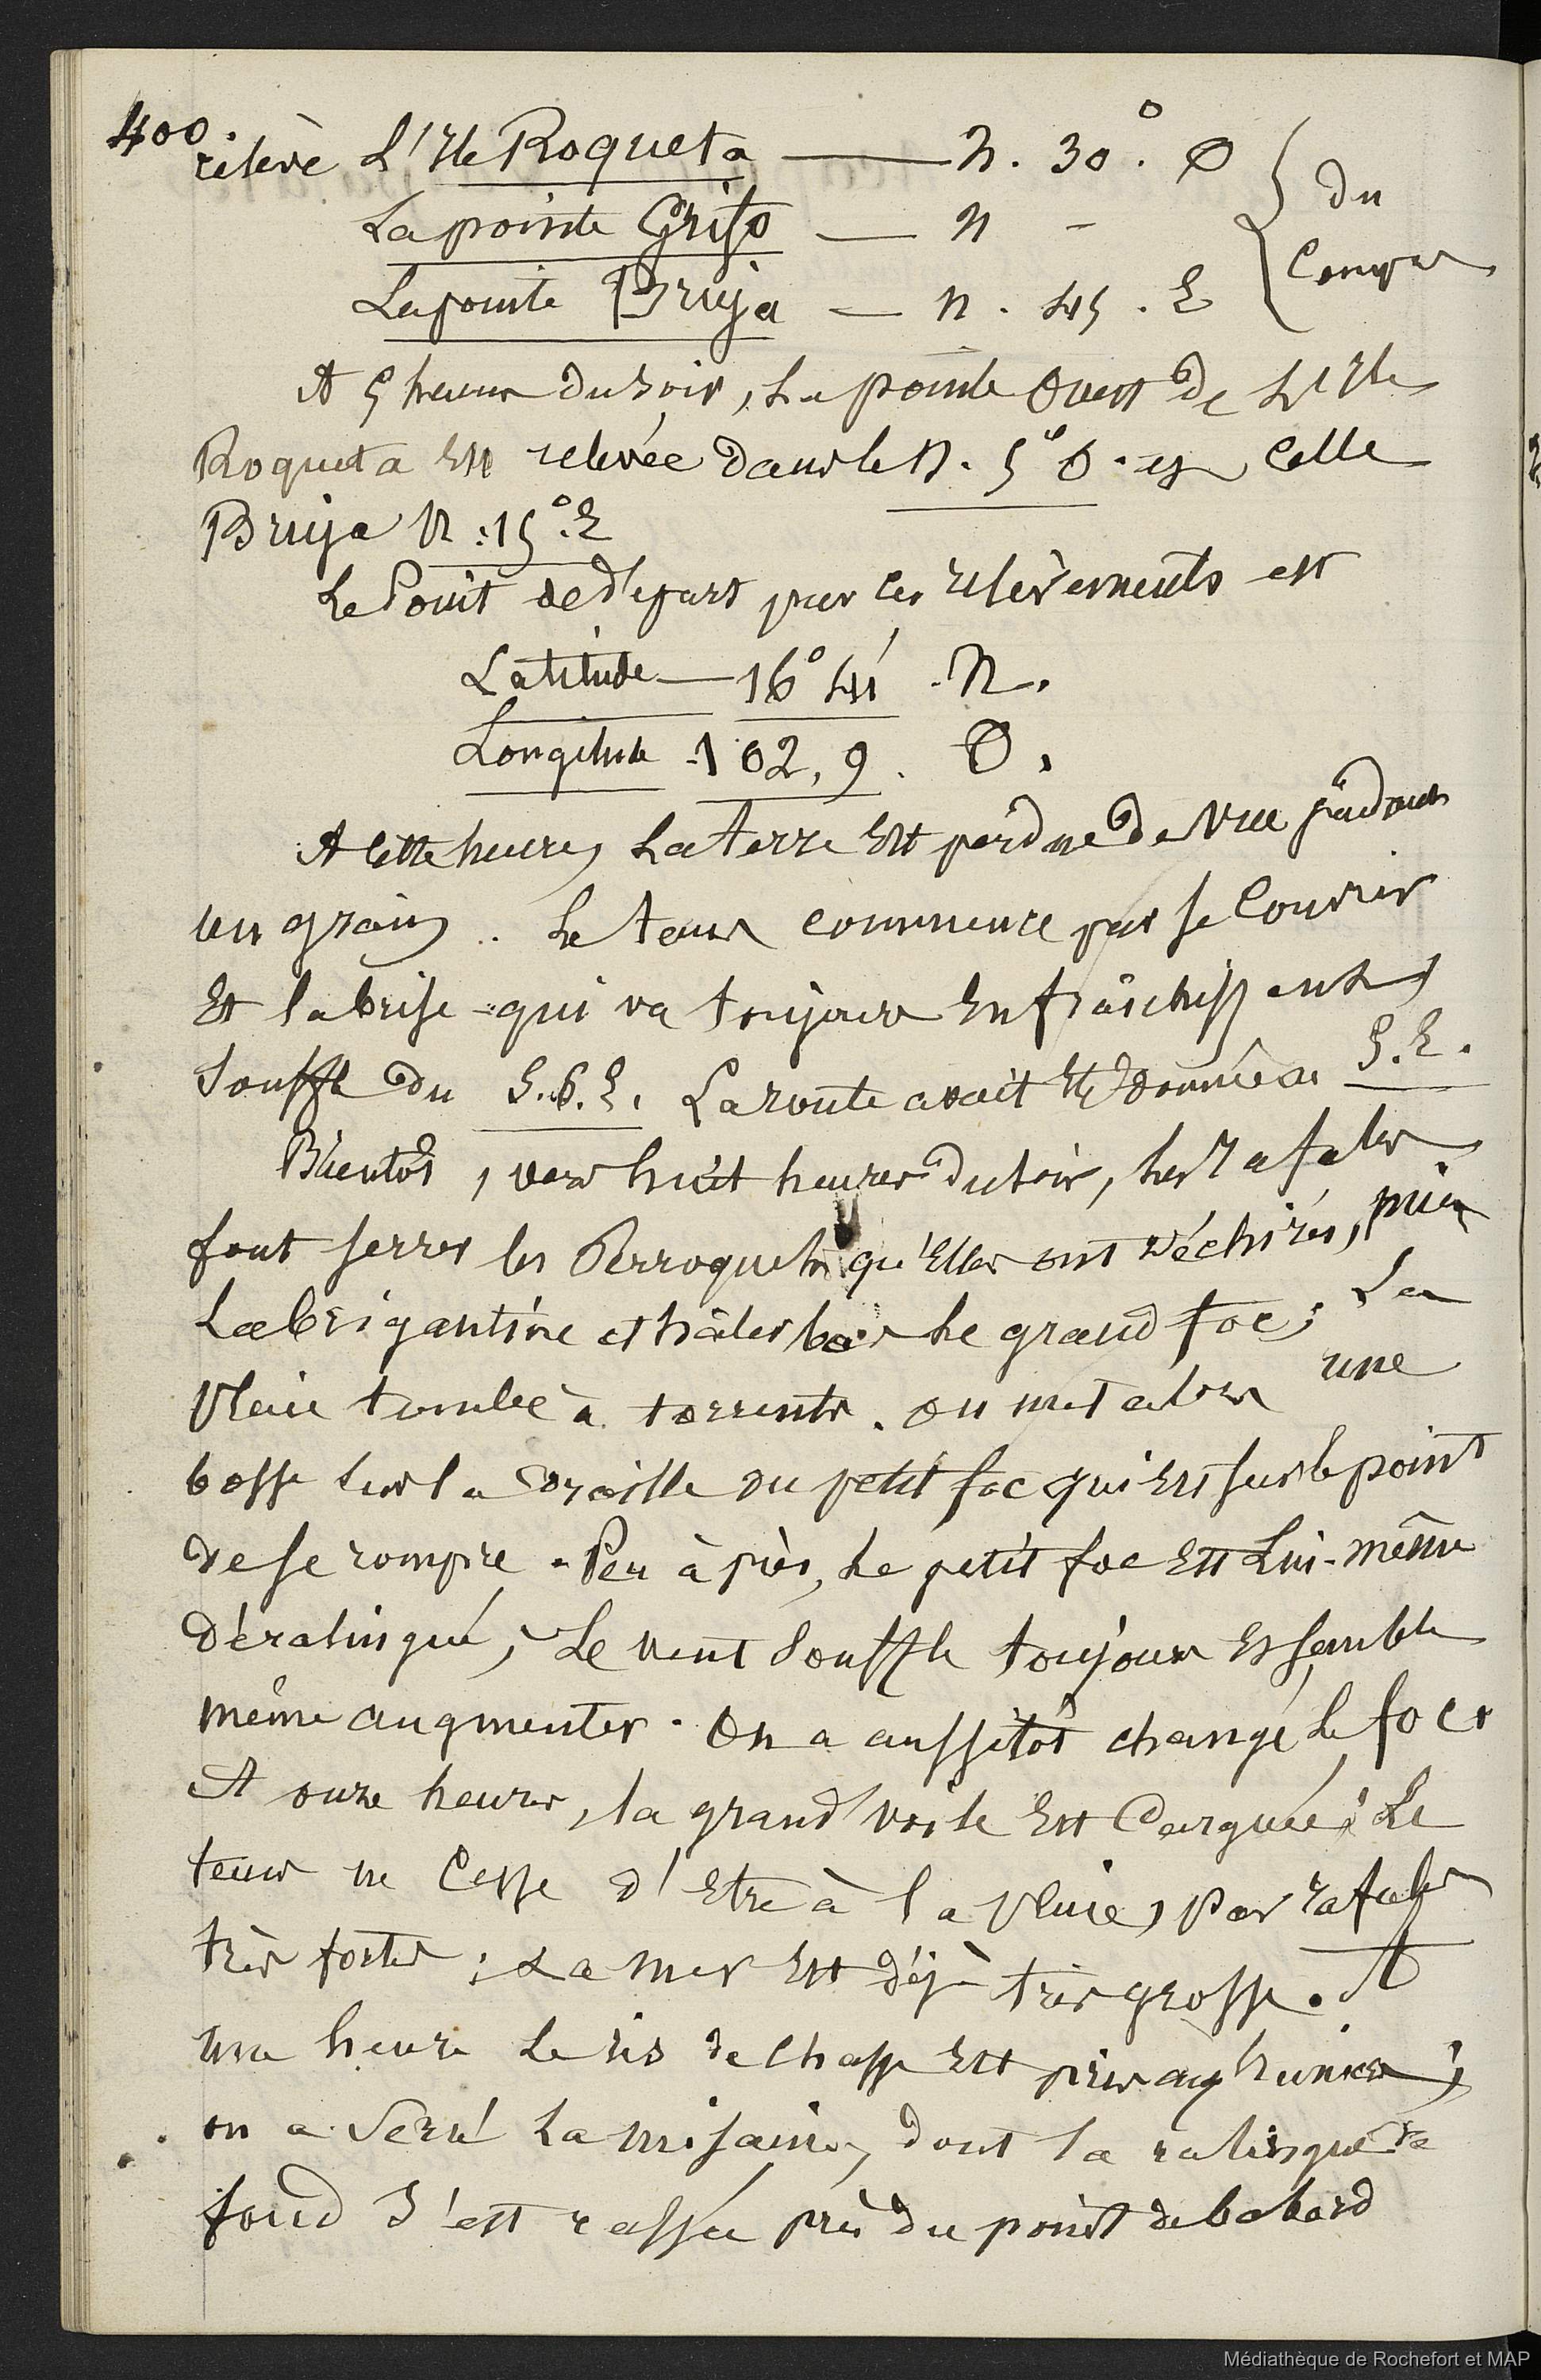 400.
relève L'Ile Roqueta — N. 30°. O } du
La pointe Grifo — N - } Compas
La pointe Bruja — N. 45. E
A 5 heures du soir, La pointe Ouest de L'Ile
Roqueta Est relevée dans le N. 5° O. et Celle
Bruja N. 15°. E
Le Point de départ par ces relèvements est
Latitude — 16° 41' . N.
Longitude - 102, 9. O.
A Cette heure, La Terre Est perdue de Vue pendant
un grain .. Le temps commence par se Couvrir
Et la brise qui va toujours En fraichissant,
Souffle du S.S.E. La route avait été donnée au S.E.
Bientôt, vers huit heures du soir, les rafales
font serrer les Perroquets qu'Elles ont déchirés, puis
La brigantine et hâler bas le grand foc; La
Pluie tombe à torrents. On met alors une
bosse sur la draille du petit foc qui Est sur le point
de se rompre. Peu après, Le petit foc Est Lui-même
déralingué; Le vent Souffle toujours Et semble
même augmenter. On a aussitôt changé Le foc.
A onze heures, la grand'voile Est Carguée; Le
temps ne Cesse d'Etre à la Pluie, par rafales
très fortes; La mer Est déjà très grosse. A
une heure Le ris de chasse Est pris aux huniers;
on a Serré La misaine, dont la ralingue de
fond S'est cassée près du point de babord
Médiathèque de Rochefort et MAP